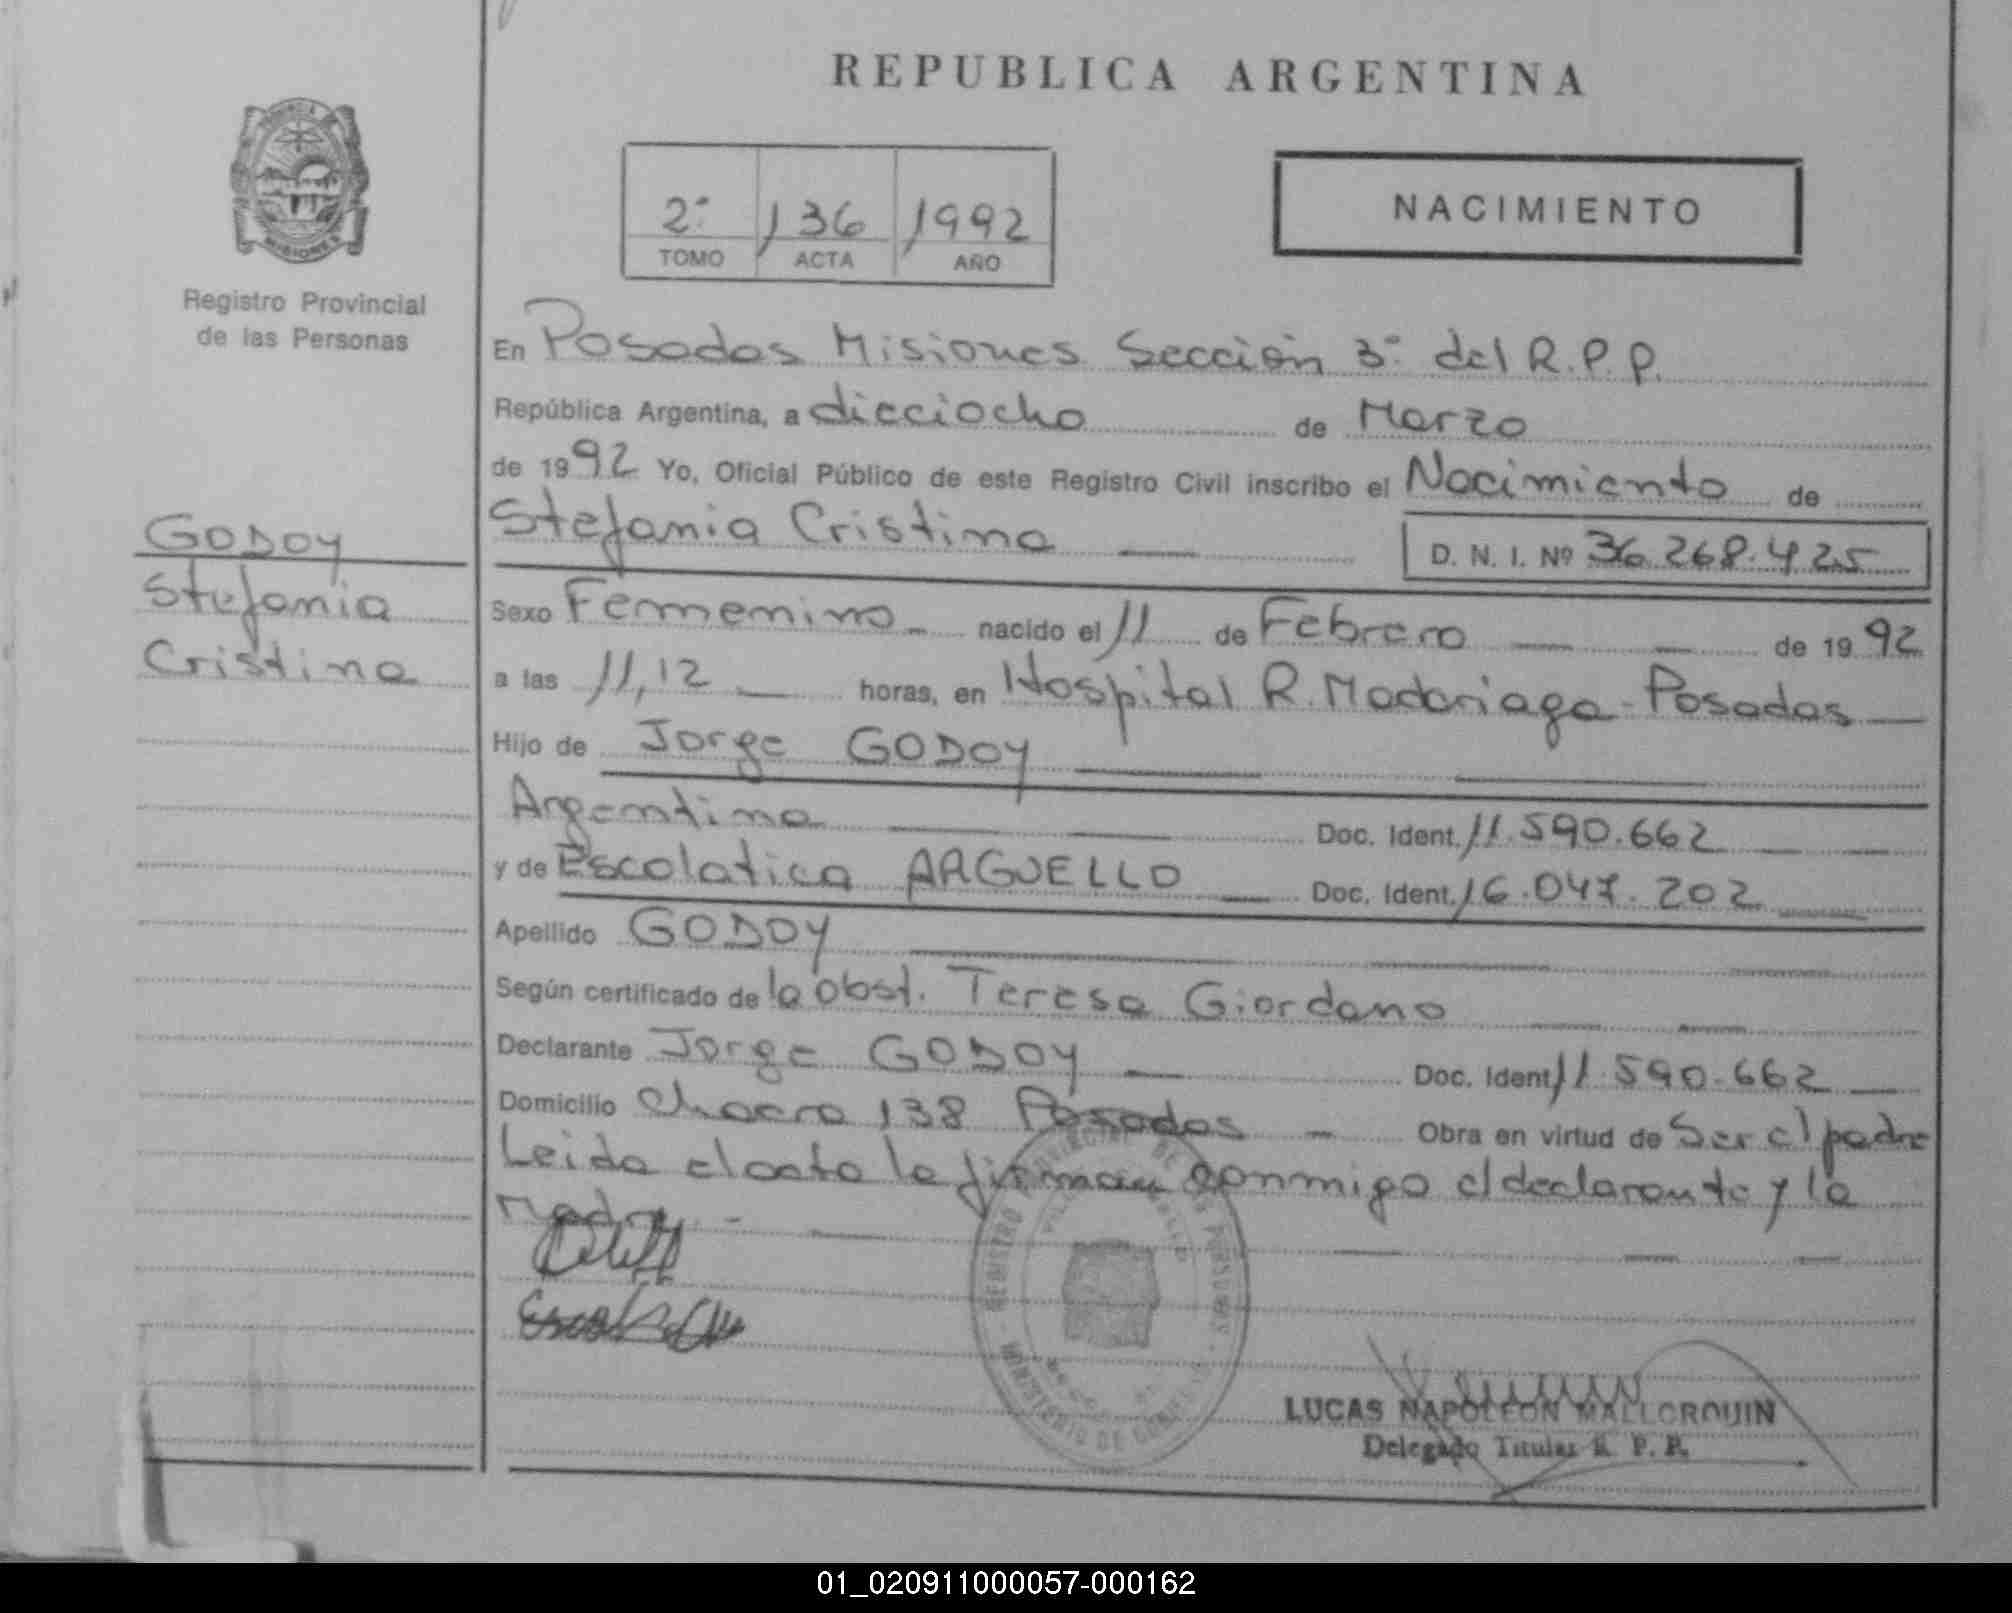 REPUBLICA ARGENTINA
PROVINCIA
MISIONES
Registro Provincial
de las Personas
2º 136 1992
TOMO ACTA AÑO
NACIMIENTO
GODOY
Stefania
Cristina
En Posadas Misiones Sección 3º del R.P.P.
República Argentina, a dieciocho de Marzo
de 1992 Yo, Oficial Público de este Registro Civil inscribo el Nacimiento de
Stefania Cristina D. N. I. Nº 36.268.425
Sexo Femenino nacido el 11 de Febrero de 1992
a las 11,12 horas, en Hospital R. Madariaga - Posadas
Hijo de Jorge GODOY
Argentina Doc. Ident. 11.590.662
y de Escolatica ARGUELLO Doc. Ident. 16.047.202
Apellido GODOY
Según certificado de la obst. Teresa Giordano
Declarante Jorge GODOY Doc. Ident 11.590.662
Domicilio Chacra 138 Posadas Obra en virtud de Ser el padre
Leida el acta la firman conmigo el declarante y la
Madre.-
REGISTRO PROVINCIAL DE LAS PERSONAS
MINISTERIO DE GOBIERNO
LUCAS NAPOLEON MALLORQUIN
Delegado Titular R. P. P.
01_020911000057-000162